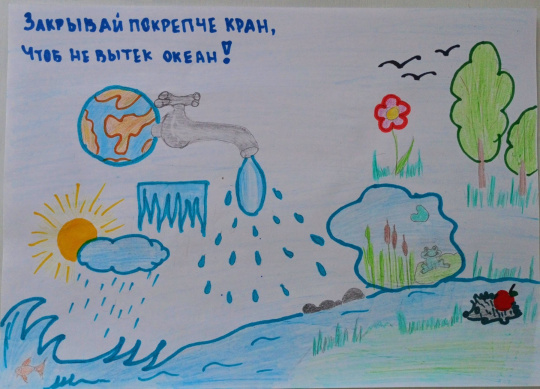 Закрывай покрепче кран,
Чтоб не вытек океан!